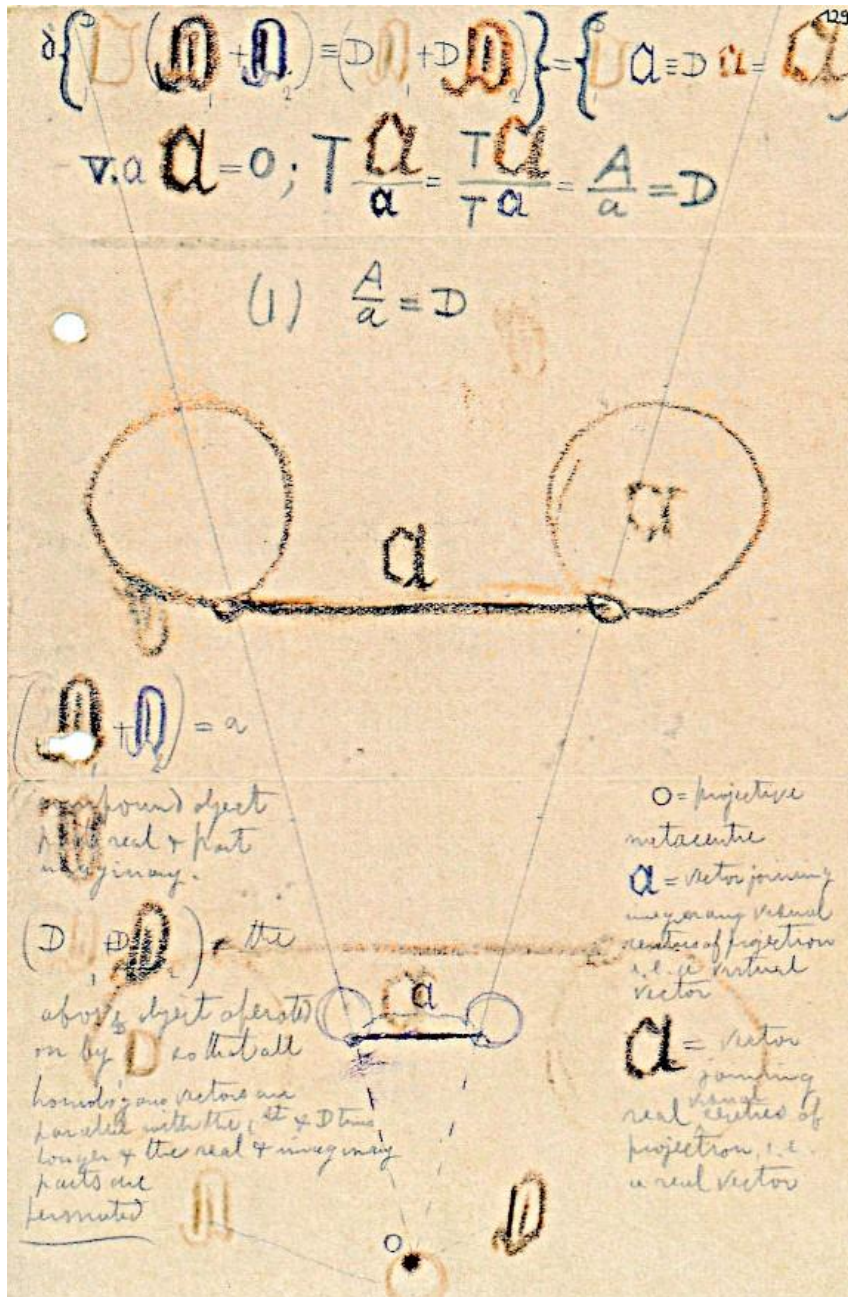 129
∂{D(𝔇₁ + 𝔇₂) ≡ (D 𝔇₁ + D 𝔇₂)} = {D 𝔞 ≡ D 𝔞 = 𝔞}
V.a 𝔞 = 0 ; T 𝔞/a = T𝔞/Ta = A/a = D
(1) A/a = D
𝔞
𝔞
(𝔇₁ + 𝔇₂) = a
compound object
part real & part
imaginary.
(D 𝔇₁ + D 𝔇₂) = the
above object operated
on by D so that all
homologous vectors are
parallel with the 1st & D times
longer & the real & imaginary
parts are
permuted
O = projective
metacentre
a = vector joining
imaginary visual
centres of projection
i.e. a virtual
vector
𝔞 = vector
joining
visual
real centres of
projection, i.e.
a real vector
a
O